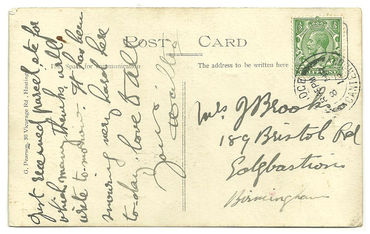 POST CARD
The address to be written here
G. Pearson, 30 Vicarage Rd, Hastings
Just received parcel etc for
which many thanks, will
write tomorrow. It has been
snowing very hard here
to-day, love to all
Yours
Mrs J Brooks
189 Bristol Rd
Edgbaston
Birmingham